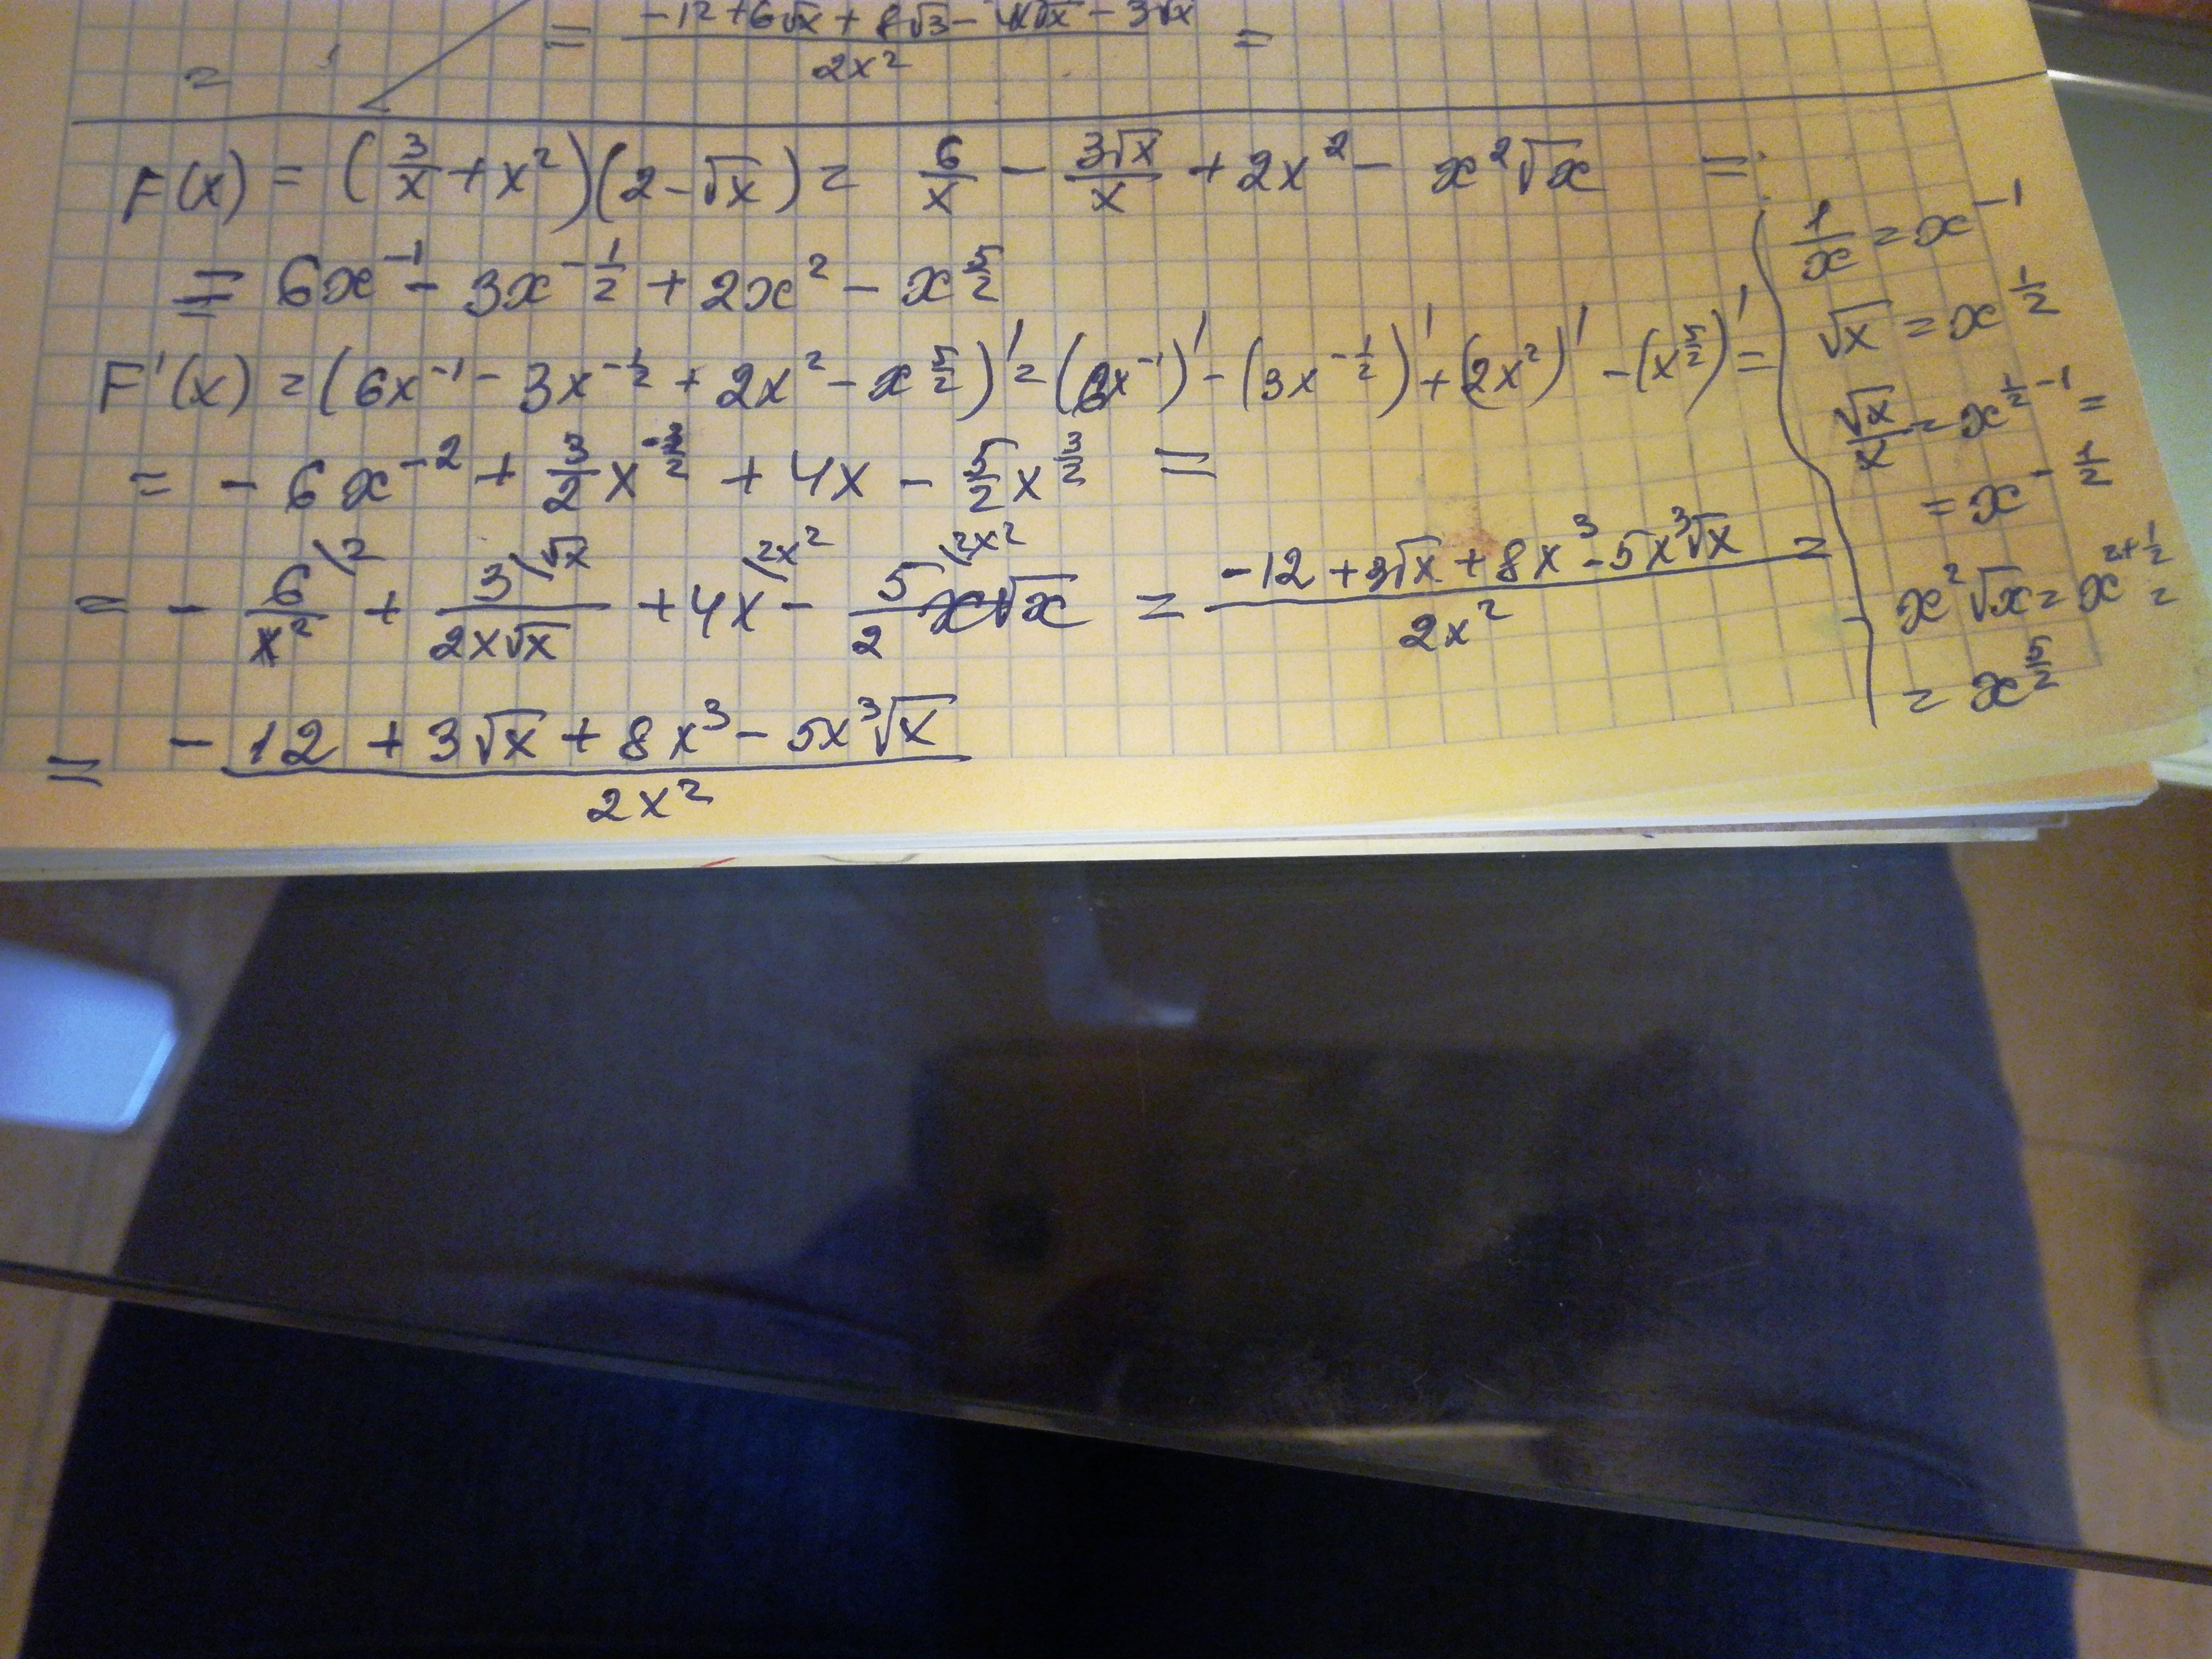 = (-12 + 6√x + 8√3 - 4x√x - 3√x)/(2x²) =
=
F(x) = (3/x + x²)(2 - √x) = 6/x - 3√x/x + 2x² - x²√x =
= 6x⁻¹ - 3x^(-1/2) + 2x² - x^(5/2)
F'(x) = (6x⁻¹ - 3x^(-1/2) + 2x² - x^(5/2))' = (6x⁻¹)' - (3x^(-1/2))' + (2x²)' - (x^(5/2))' =
= -6x⁻² + 3/2 x^(-3/2) + 4x - 5/2 x^(3/2) =
= - 6\2/x² + 3\√x/(2x√x) + 4x\2x² - 5\2x²/2 x√x = (-12 + 3√x + 8x³ - 5x³√x)/(2x²) =
= (-12 + 3√x + 8x³ - 5x³√x)/(2x²)
1/x = x⁻¹
√x = x^(1/2)
√x/x = x^(1/2-1) =
= x^(-1/2)
x²√x = x^(2+1/2) =
= x^(5/2)